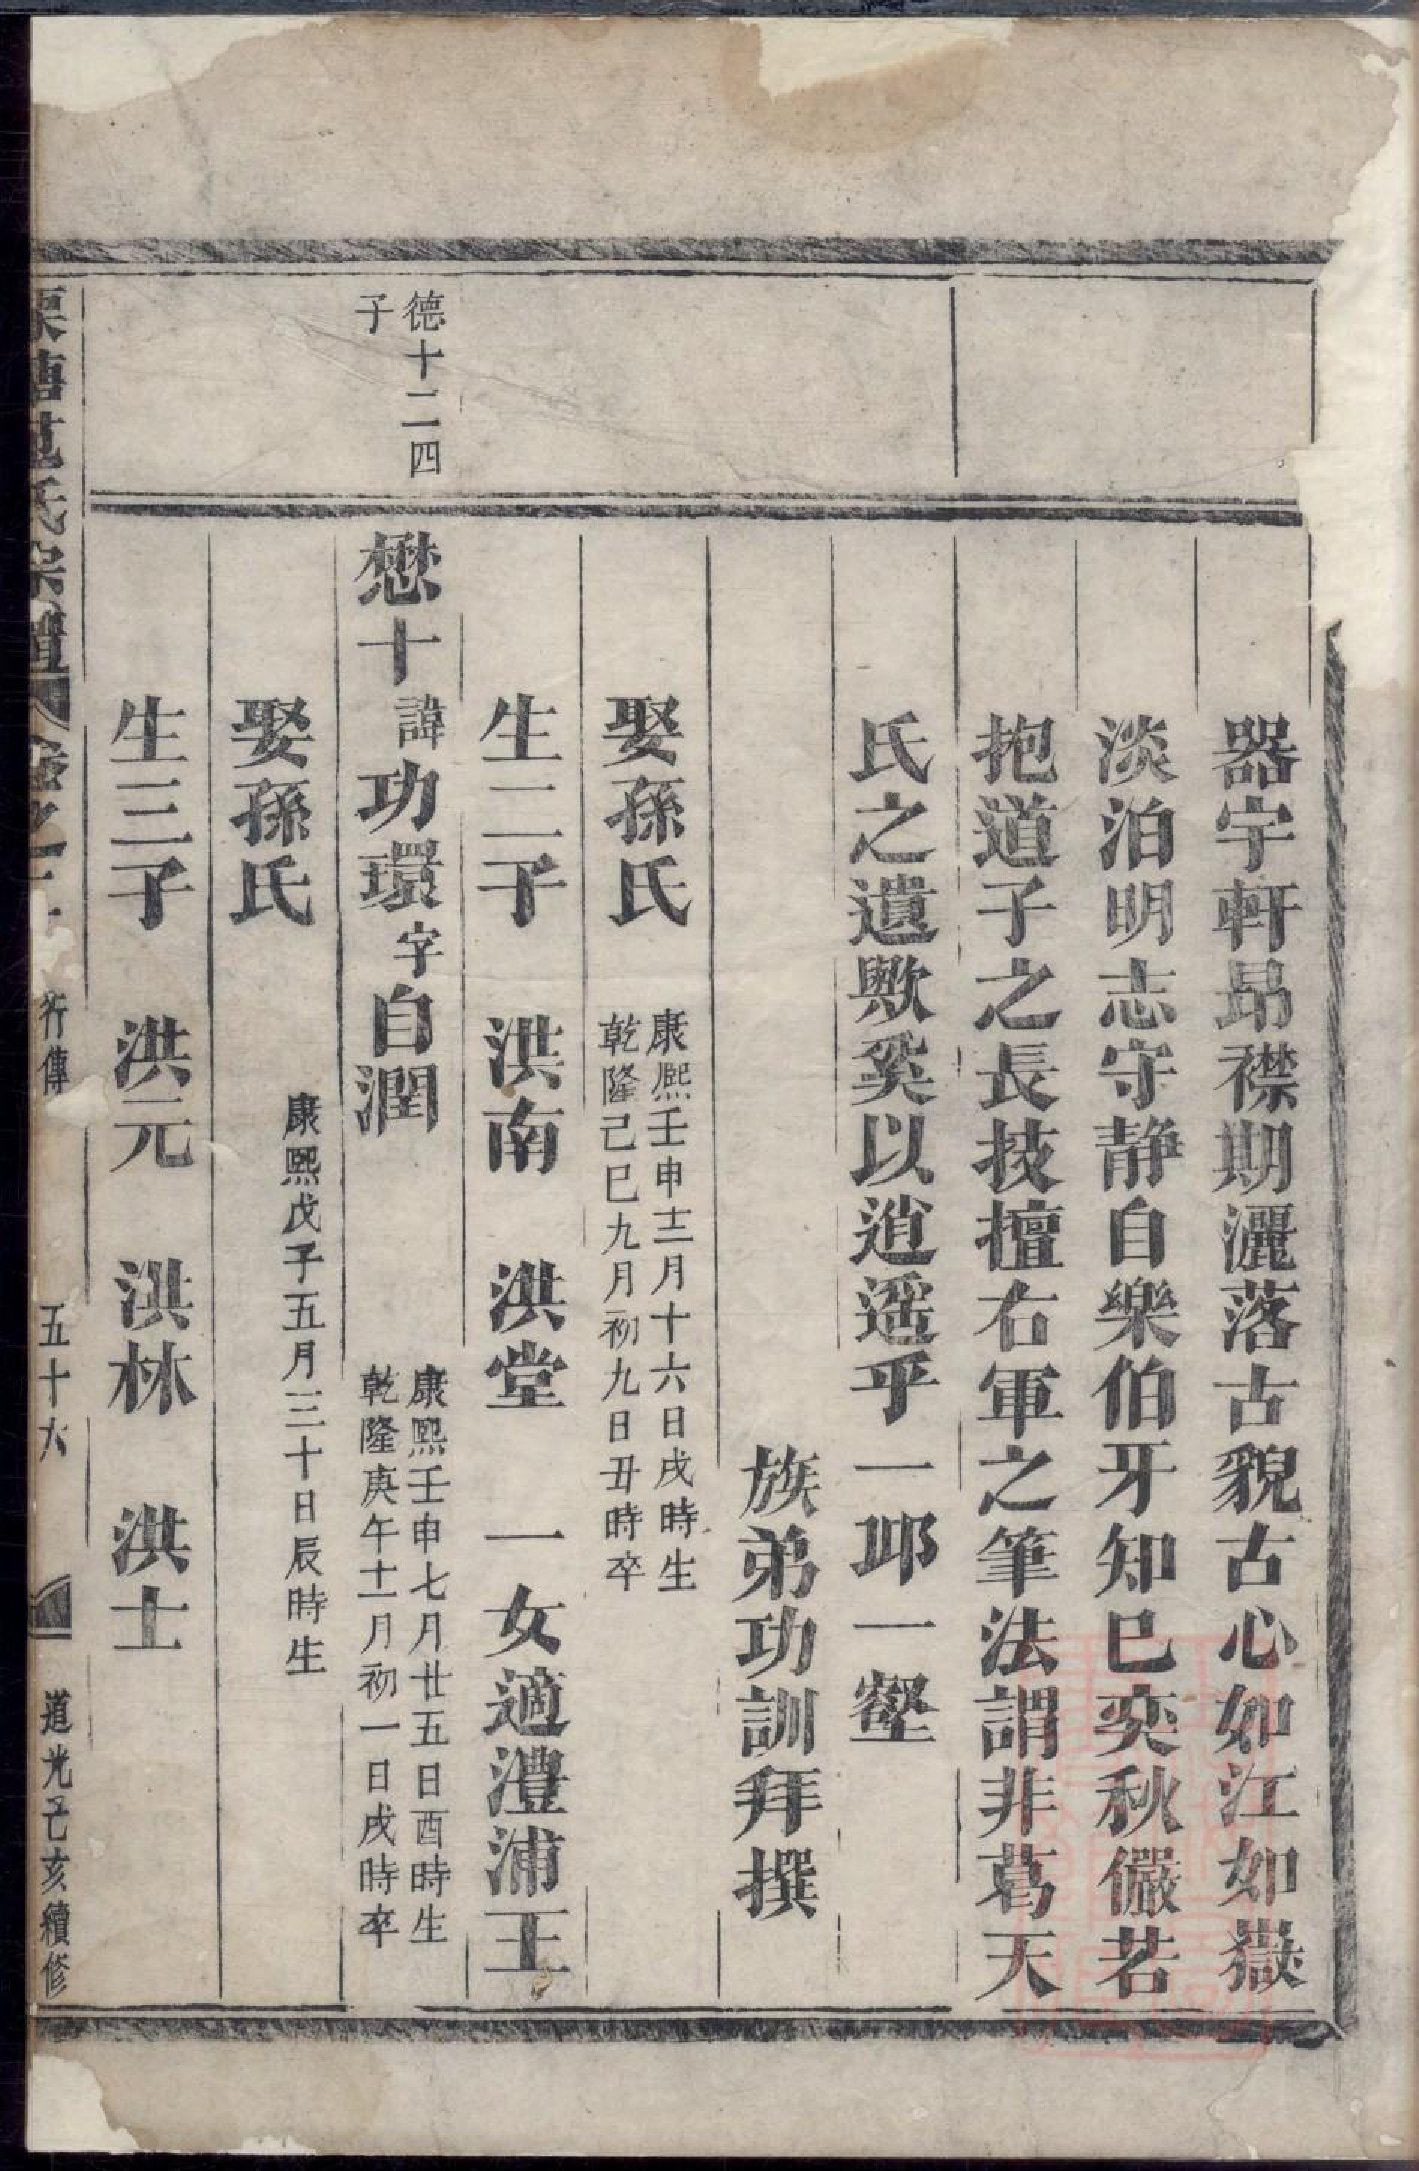 器宇軒昂襟期灑落古貌古心如江如嶽
淡泊明志守静自樂伯牙知巳奕秋儼若
抱道子之長技擅右軍之筆法謂非葛天
氏之遺歟奚以逍遥乎一邱一壑
族弟功訓拜撰
娶孫氏
康熙壬申十二月十六日戌時生
乾隆己巳九月初九日丑時卒
生二子 洪南 洪堂 一女適澧浦王
德十二四
子
懋十諱功環字自潤
康熙壬申七月廿五日酉時生
乾隆庚午十一月初一日戌時卒
娶孫氏
康熙戊子五月三十日辰時生
生三子 洪元 洪林 洪士
氏宗譜 卷之 行傳 五十六 道光己亥續修